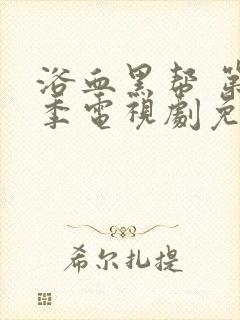 浴血黑帮 第
季電視劇免
希尔扎提